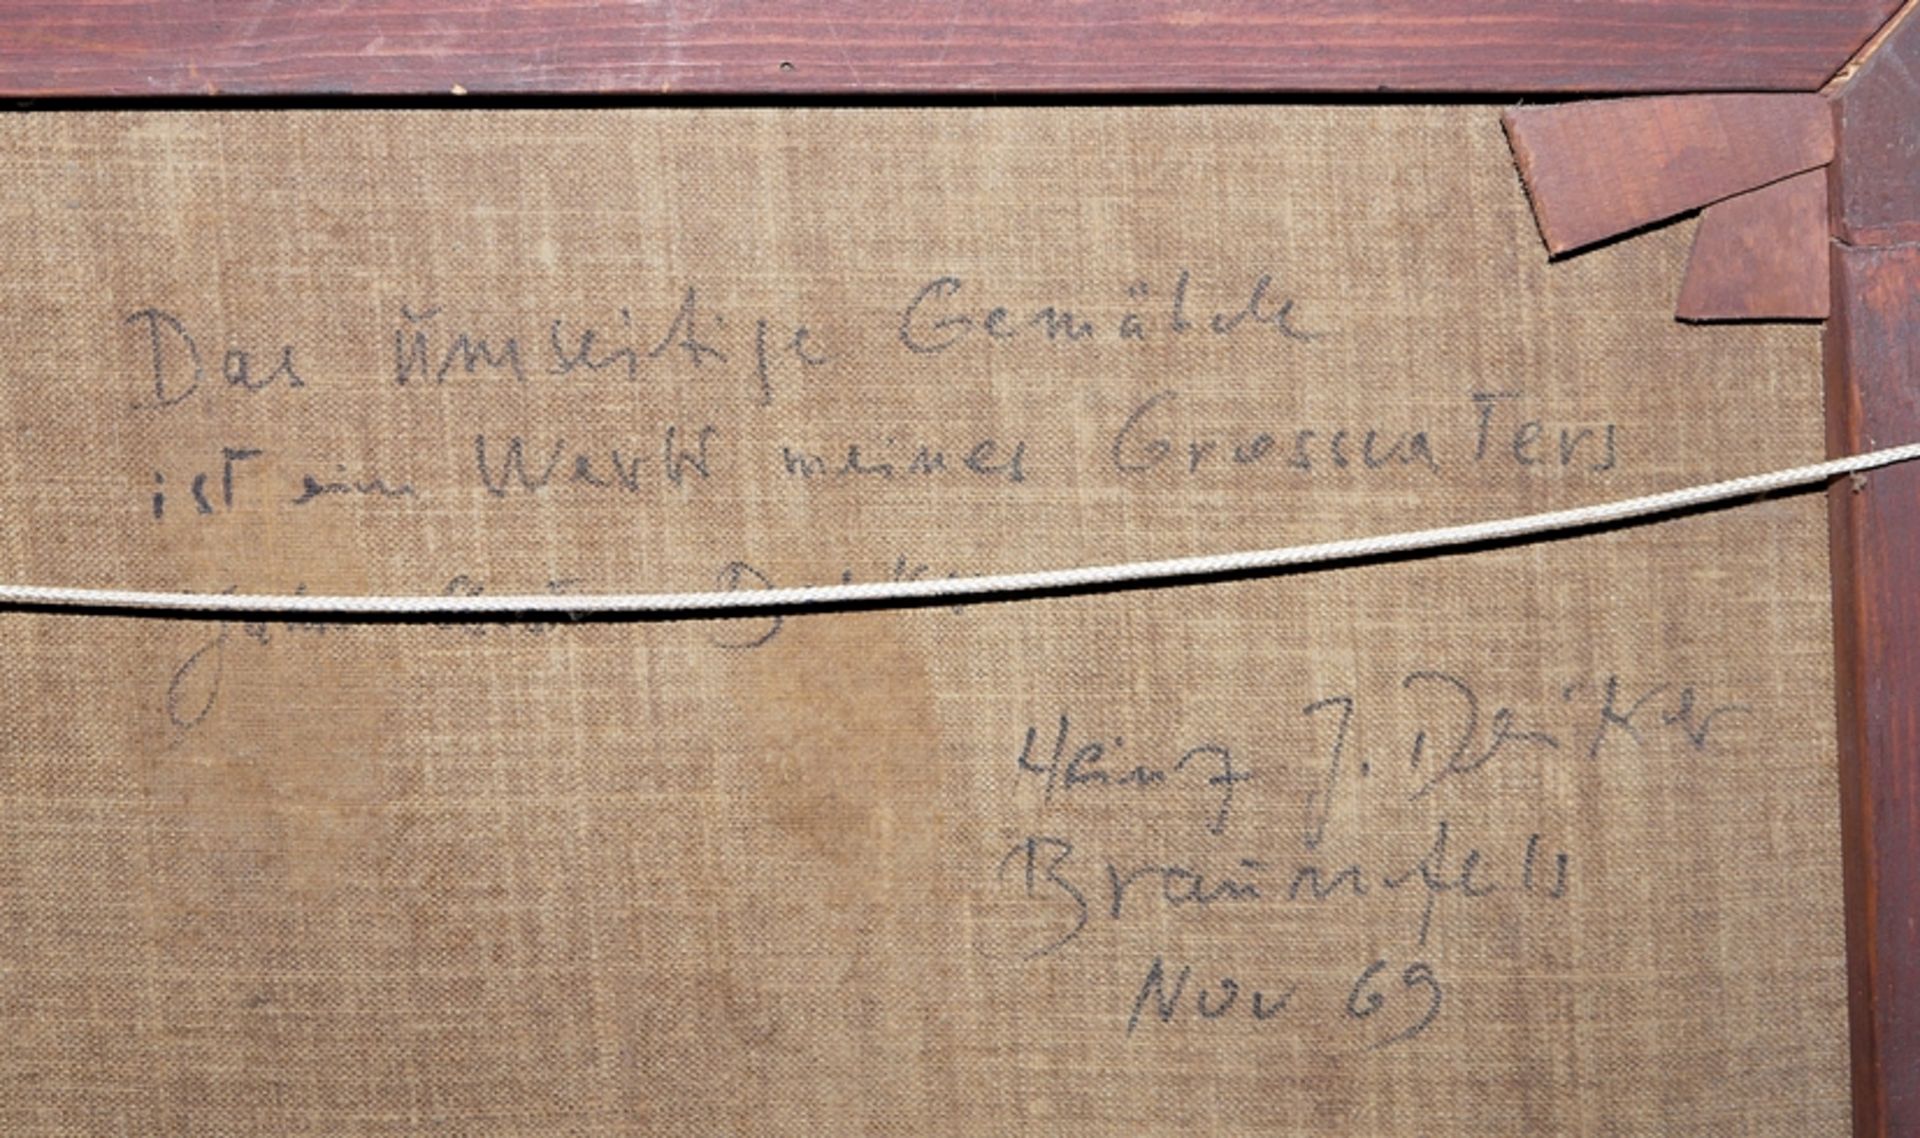 Das umseitige Gemälde
ist ein Werk meines Grossvaters
Deiker
Heinz J. Deiker
Braunfels
Nov 69